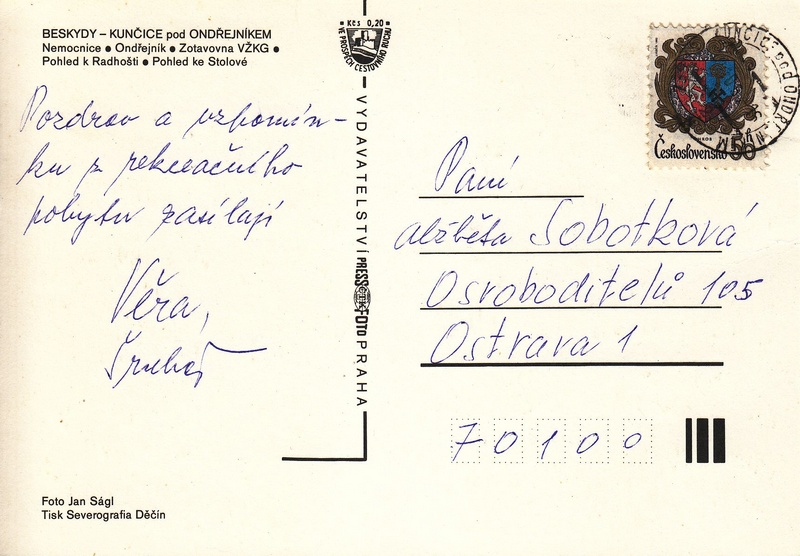 BESKYDY – KUNČICE pod ONDŘEJNÍKEM
Nemocnice ● Ondřejník ● Zotavovna VŽKG ●
Pohled k Radhošti ● Pohled ke Stolové
Pozdrav a vzpomín-
ku z rekreačního
pobytu zasílají
Věra,
Foto Jan Ságl
Tisk Severografia Děčín
Kčs 0,20
VE PROSPĚCH CESTOVNÍHO RUCHU
VYDAVATELSTVÍ PRESSFOTO PRAHA
Československo 50
KUNČICE pod ONDŘEJNÍKEM
Paní
Alžběta Sobotková
Osvoboditelů 105
Ostrava 1
70100